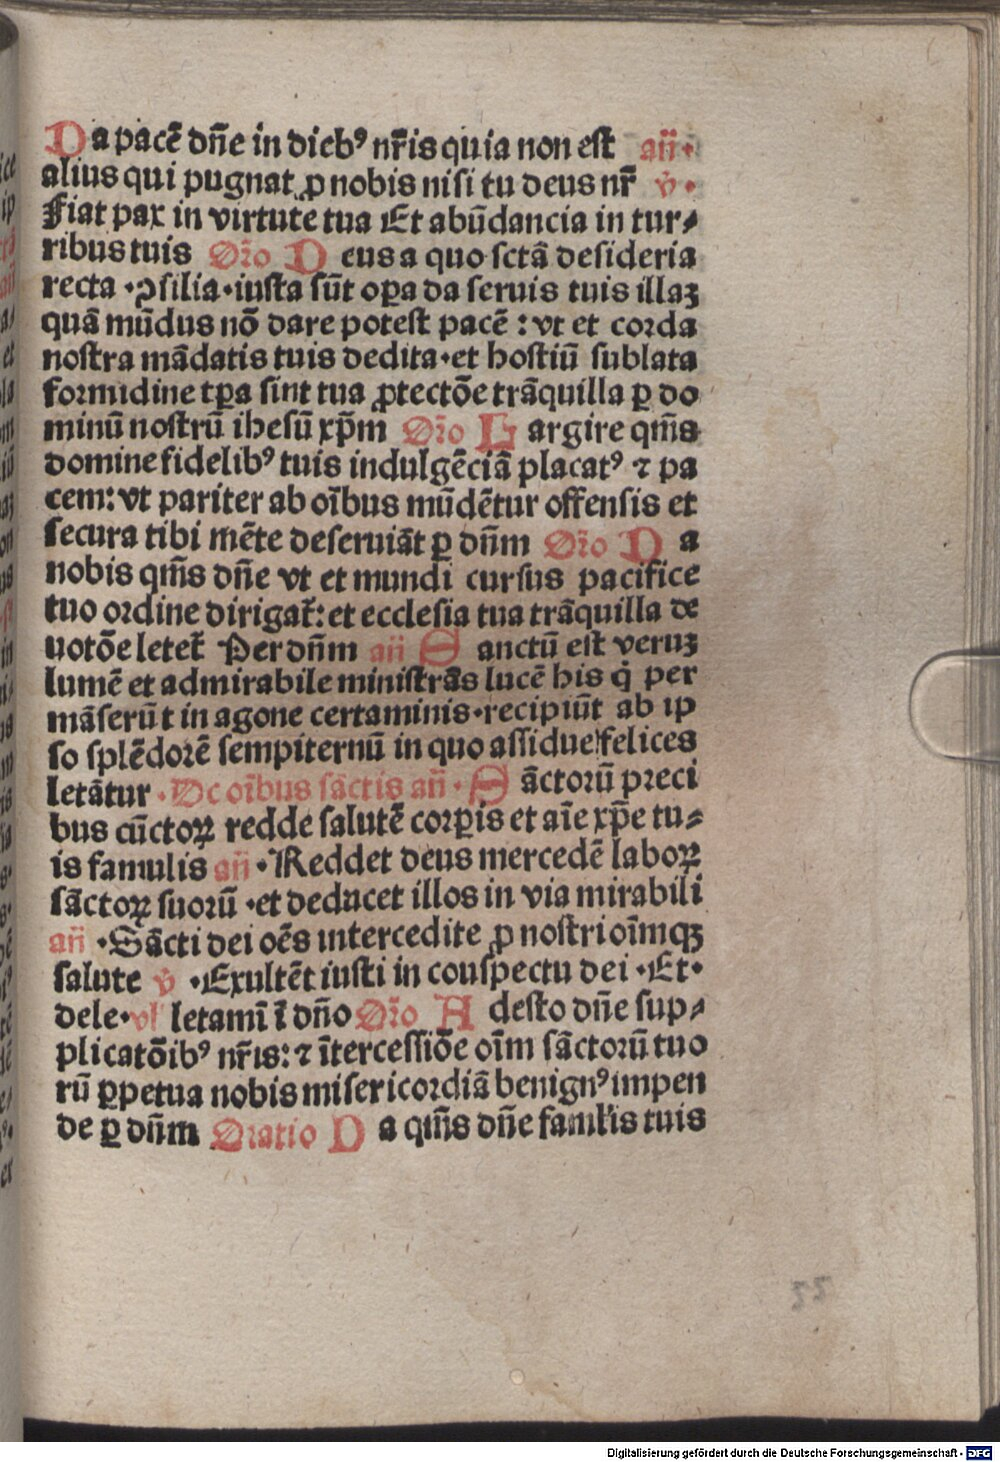 Da pacē dn̄e in dieb⁹ nr̄is quia non est an̄·
alius qui pugnat ꝓ nobis nisi tu deus nr̄ v̄·
Fiat pax in virtute tua Et abūdancia in tur⸗
ribus tuis Or̄o Deus a quo sctā desideria
recta ·ꝯsilia·iusta sūt oꝑa da seruis tuis illaꝫ
quā mūdus nō dare potest pacē : vt et corda
nostra mādatis tuis dedita·et hostiū sublata
formidine tꝑa sint tua ꝓtectōe trāquilla ꝑ do
minū nostrū ihesū xp̄m Or̄o Largire qm̄s
domine fidelib⁹ tuis indulgēciā placat⁹ ⁊ pa
cem: vt pariter ab oībus mūdētur offensis et
secura tibi mēte deseruiāt ꝑ dn̄m Or̄o Da
nobis qm̄s dn̄e vt et mundi cursus pacifice
tuo ordine dirigat᷑: et ecclesia tua trāquilla de
uotōe letet᷑ Per dn̄m an̄ Sanctū est veruꝫ
lumē et admirabile ministrās lucē his q̇ per
māserūt in agone certaminis·recipiūt ab ip
so splēdorē sempiternū in quo assidue felices
letātur ·De oībus sāctis an̄· Sāctorū preci
bus cūctoꝝ redde salutē corꝑis et aīe xp̄e tu⸗
is famulis an̄ ·Reddet deus mercedē laboꝝ
sāctoꝝ suorū ·et deducet illos in via mirabili
an̄ ·Sācti dei oēs intercedite ꝓ nostri oīmqꝫ
salute v̄ ·Exultēt iusti in conspectu dei ·Et·
dele·vl' letamī ī dn̄o Or̄o Adesto dn̄e sup⸗
plicatōib⁹ nr̄is: ⁊ ītercessiōe oīm sāctorū tuo
rū ꝑpetua nobis misericordiā benign⁹ impen
de ꝑ dn̄m Oratio Da qm̄s dn̄e famĺis tuis
Digitalisierung gefördert durch die Deutsche Forschungsgemeinschaft - DFG